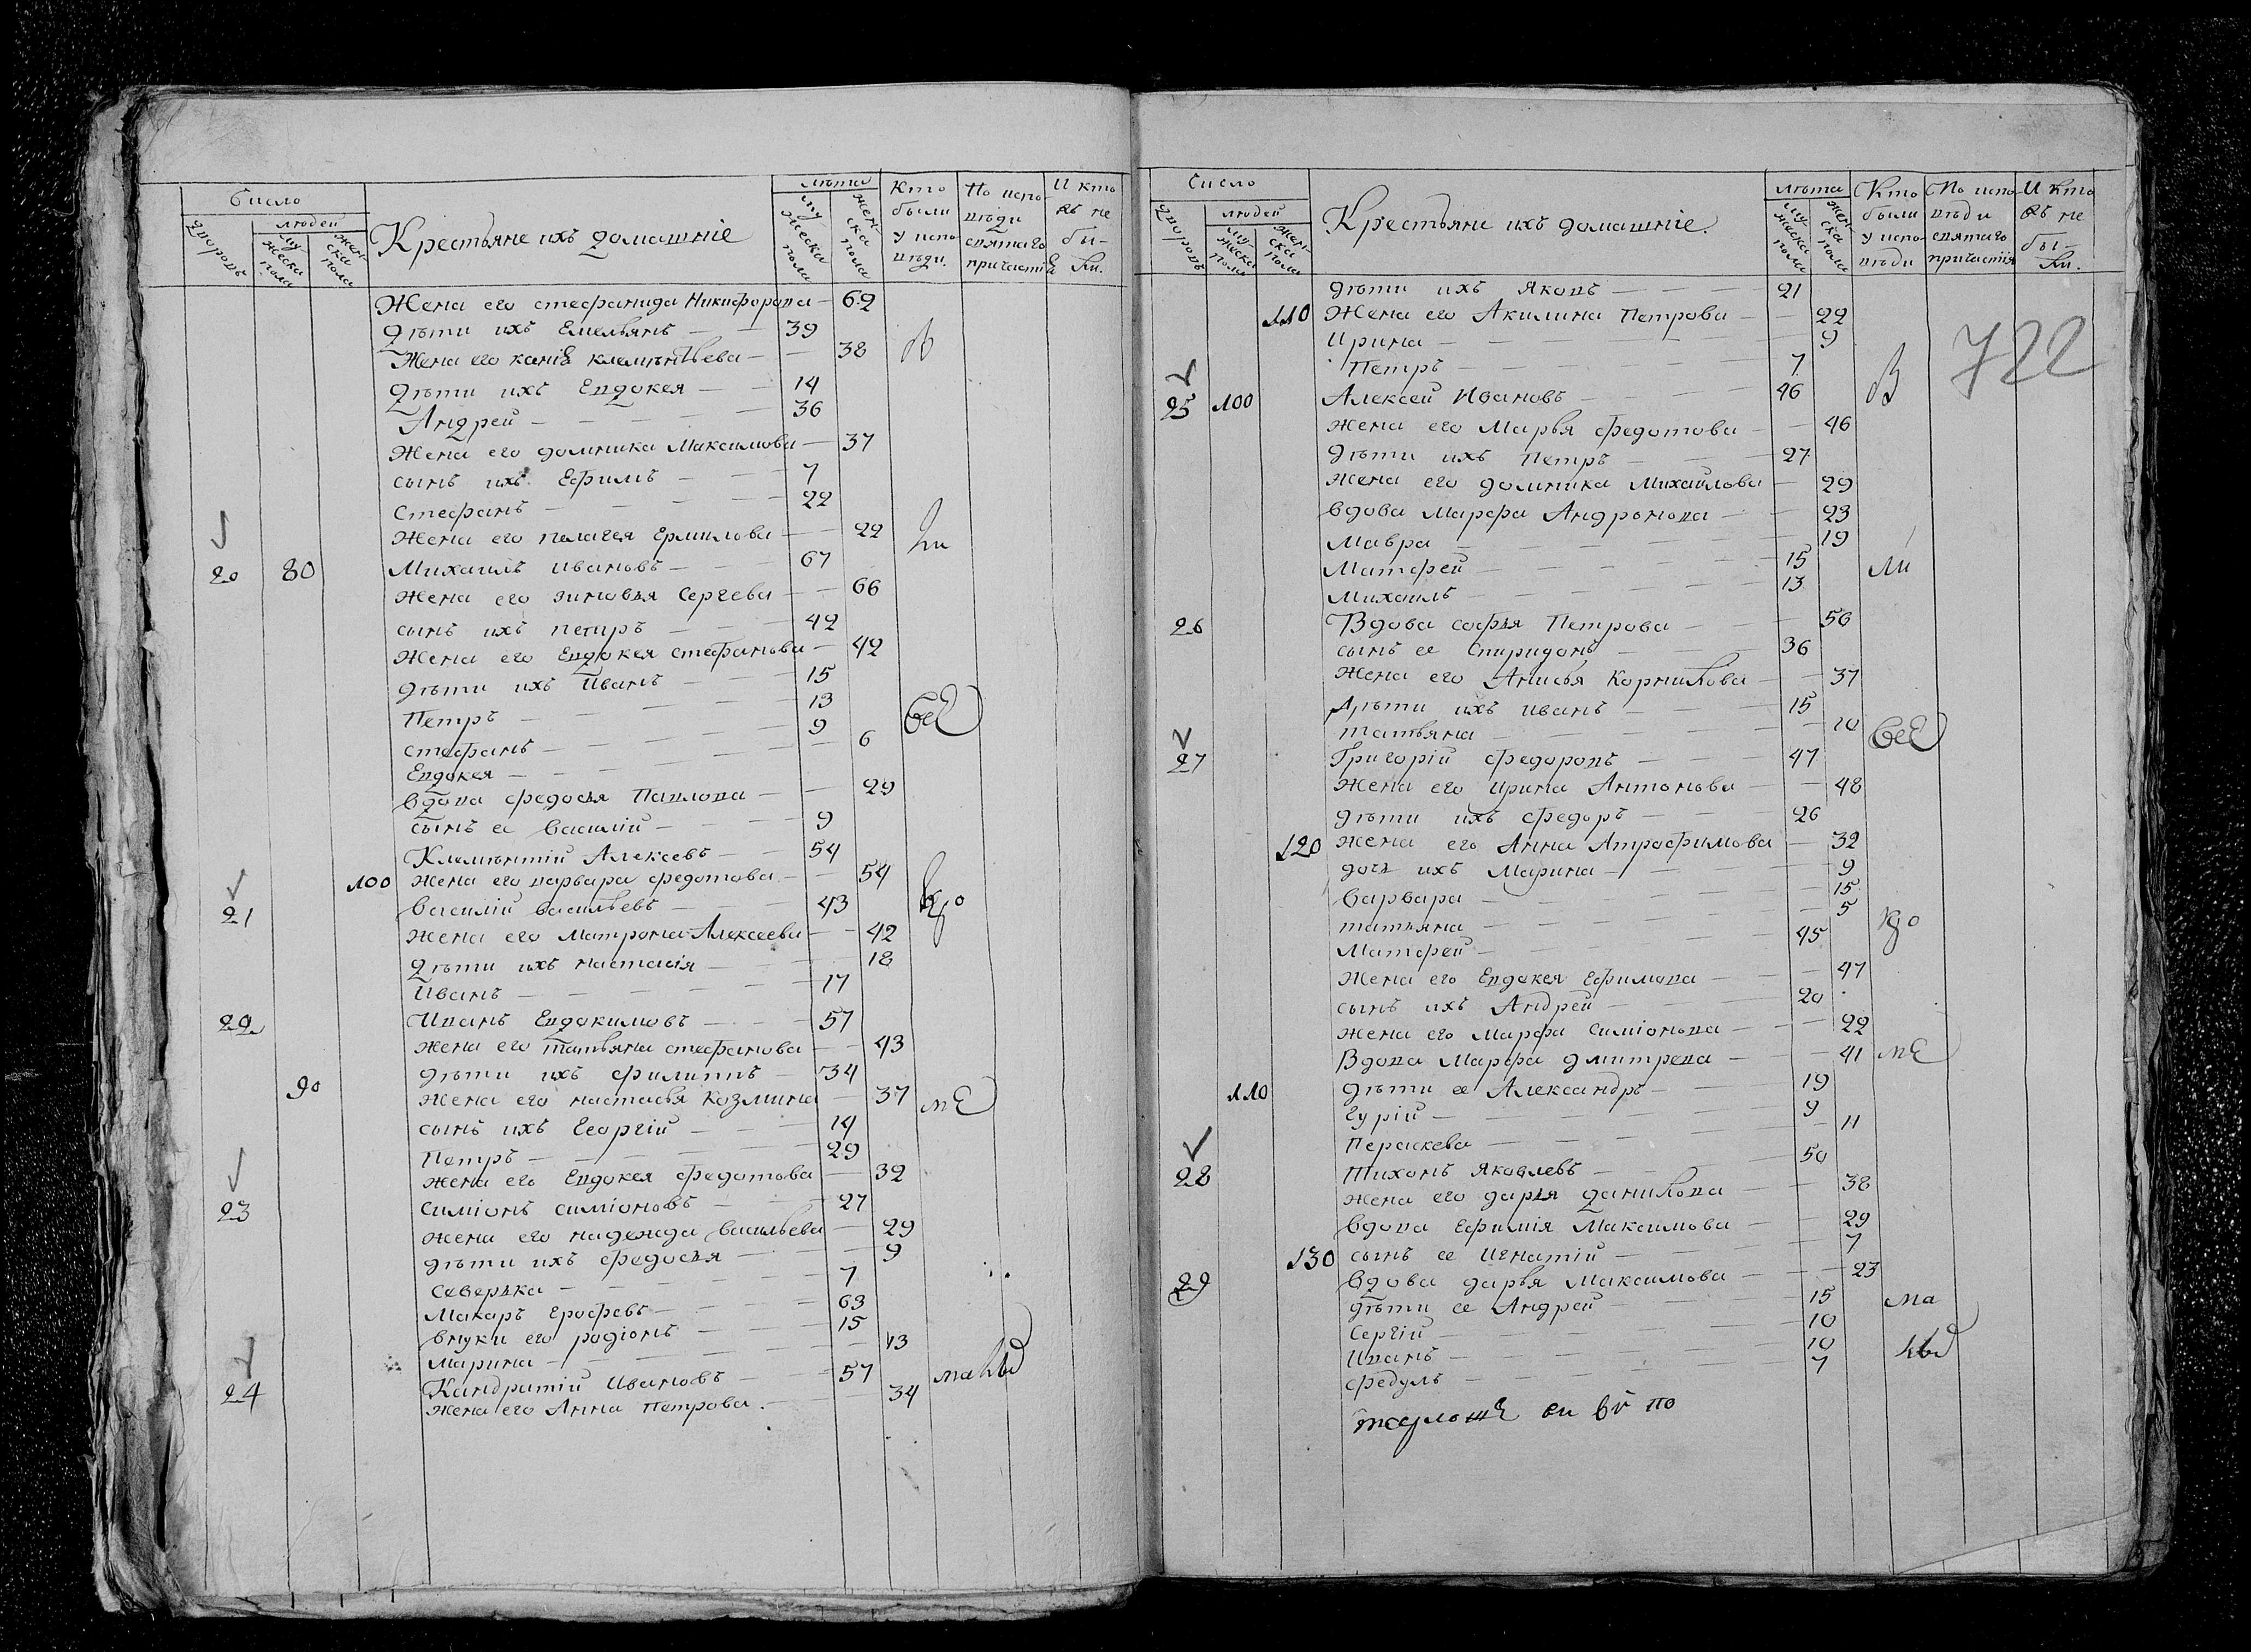 Число
дворовъ
людей
мужеска пола
женска пола
Крестьяне ихъ домашніе
лѣта
мужеска пола
женска пола
Кто были у исповѣди
По исповѣди святаго причастія
И кто въ не были.
Жена его стефанида Никифорова — 62
дѣти ихъ Емельянъ — 39
Жена его Клементьева — 38
дѣти ихъ Евдокея — 14
Андрей — 36
Жена его домника Максимова — 37
сынъ ихъ Ефимъ — 7
Стефанъ — 22
Жена его пелагея Ермилова — 22
20 80 Михаилъ ивановъ — 67
Жена его зиновья Сергева — 66
сынъ ихъ петръ — 42
Жена его Евдокея стефанова — 42
дѣти ихъ Иванъ — 15
Петръ — 13
стефанъ — 9
Евдокея — 6
вдова федосья Павлова — 29
сынъ ее василій — 9
Клементій Алексевъ — 54
100 Жена его варвара федотова — 54
21 василій васильевъ — 43
Жена его Матрона Алексеева — 42
дѣти ихъ настасія — 18
Иванъ — 17
22 Иванъ Евдокимовъ — 57
Жена его татьяна стефанова — 43
дѣти ихъ филиппъ — 34
90 Жена его настасья Козмина — 37
сынъ ихъ Георгій — 14
Петръ — 29
Жена его Евдокея федотова — 32
23 симіонъ симіоновъ — 27
Жена его надежда васильева — 29
дѣти ихъ федосья — 9
Северька — 7
Макаръ ерофевъ — 63
внуки его родіонъ — 15
Марина — 13
24 Кандратій Ивановъ — 57
жена его Анна петрова. — 34
Число
дворовъ
людей
мужеска пола
женска пола
Крестьяни ихъ домашніе.
лѣта
мужеска пола
женска пола
Кто были у исповѣди
По исповѣди святаго причастія
И кто въ не были.
722
дѣти ихъ Яковъ — 21
110 Жена его Акилина Петрова — 22
Ирина — 9
Петръ — 7
25 100 Алексей Ивановъ — 46
жена его Марья Федотова — 46
дѣти ихъ Петръ — 27
жена его домника Михайлова — 29
вдова Марфа Андронова — 23
Мавра — 19
Матфей — 15
Михаилъ — 13
26 Вдова софья Петрова — 56
сынъ ее Спиридонъ — 36
жена его Анисья Корнилова — 37
дѣти ихъ иванъ — 15
татьяна — 10
27 Григорій Федоровъ — 47
жена его ирина Антонова — 48
дѣти ихъ Федоръ — 26
120 жена его Анна Атрофимова — 32
дочь ихъ Марина — 9
варвара — 15
татьяна — 5
Матфей — 45
Жена его Евдокея Ефимова — 47
сынъ ихъ Андрей — 20
жена его Марфа Симіонова — 22
Вдова Марфа дмитрева — 41
110 дѣти ее Александръ — 19
Гурій — 9
Пераскева — 11
28 Тихонъ Яковлевъ — 50
жена его дарья данилова — 38
вдова Ефимія Максимова — 29
130 сынъ ее Игнатій — 7
29 вдова дарья Максимова — 23
дѣти ее Андрей — 15
Сергій — 10
Иванъ — 10
федулъ — 7